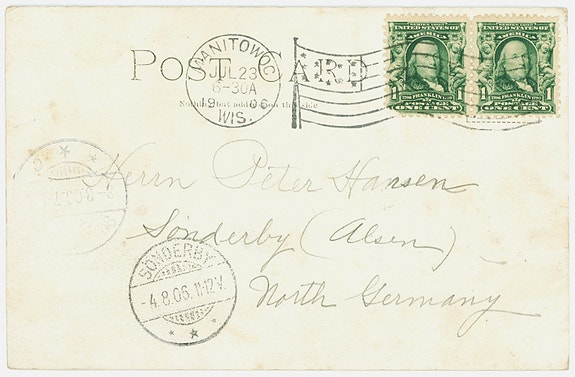 POST CARD
MANITOWOC
JUL 23
6-30A
1906
WIS.
SERIES 1902
UNITED STATES OF
AMERICA
1 1706 FRANKLIN 1790 1
POSTAGE
ONE CENT
SERIES 1902
UNITED STATES OF
AMERICA
1 1706 FRANKLIN 1790 1
POSTAGE
ONE CENT
Nothing but address on this side
Herrn Peter Hansen
Sonderby (Alsen)
North Germany
SONDERBY
-4.8.06.11-12V.
8.06.